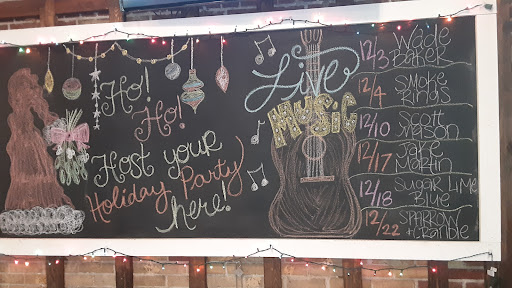 Ho!
Ho!
Host your
Holiday Party
here!
Live
Music
12/3 Wade Baker
12/4 Smoke Rings
12/10 Scott Mason
12/17 Jake Martin
12/18 Sugar Lime Blue
12/22 Sparrow + Cramble